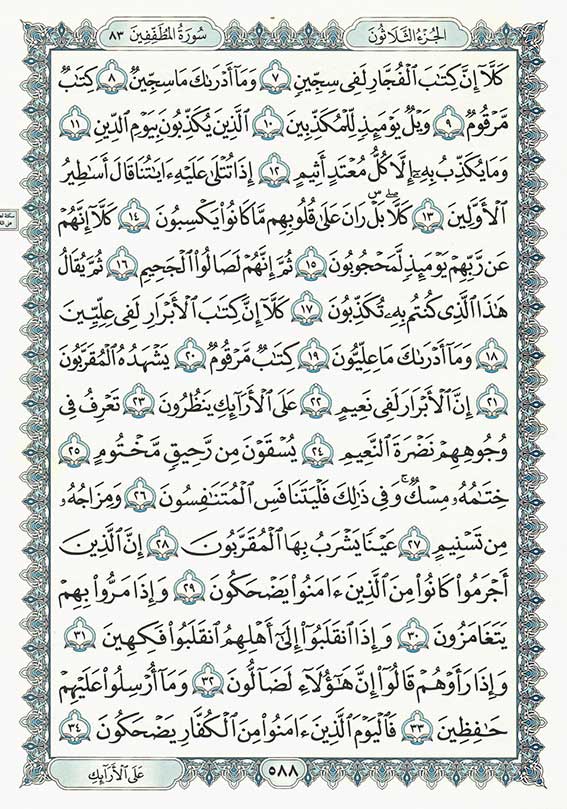 الجزء الثلاثون
سورة المطففين ٨٣
كَلَّآ إِنَّ كِتَٰبَ ٱلْفُجَّارِ لَفِى سِجِّينٍ ٧ وَمَآ أَدْرَىٰكَ مَا سِجِّينٌ ٨ كِتَٰبٌ
مَّرْقُومٌ ٩ وَيْلٌ يَوْمَئِذٍ لِّلْمُكَذِّبِينَ ١٠ ٱلَّذِينَ يُكَذِّبُونَ بِيَوْمِ ٱلدِّينِ ١١
وَمَا يُكَذِّبُ بِهِۦٓ إِلَّا كُلُّ مُعْتَدٍ أَثِيمٍ ١٢ إِذَا تُتْلَىٰ عَلَيْهِ ءَايَٰتُنَا قَالَ أَسَٰطِيرُ
ٱلْأَوَّلِينَ ١٣ كَلَّا ۖ بَلْ ۜ رَانَ عَلَىٰ قُلُوبِهِم مَّا كَانُوا۟ يَكْسِبُونَ ١٤ كَلَّآ إِنَّهُمْ
عَن رَّبِّهِمْ يَوْمَئِذٍ لَّمَحْجُوبُونَ ١٥ ثُمَّ إِنَّهُمْ لَصَالُوا۟ ٱلْجَحِيمِ ١٦ ثُمَّ يُقَالُ
هَٰذَا ٱلَّذِى كُنتُم بِهِۦ تُكَذِّبُونَ ١٧ كَلَّآ إِنَّ كِتَٰبَ ٱلْأَبْرَارِ لَفِى عِلِّيِّينَ
١٨ وَمَآ أَدْرَىٰكَ مَا عِلِّيُّونَ ١٩ كِتَٰبٌ مَّرْقُومٌ ٢٠ يَشْهَدُهُ ٱلْمُقَرَّبُونَ
٢١ إِنَّ ٱلْأَبْرَارَ لَفِى نَعِيمٍ ٢٢ عَلَى ٱلْأَرَآئِكِ يَنظُرُونَ ٢٣ تَعْرِفُ فِى
وُجُوهِهِمْ نَضْرَةَ ٱلنَّعِيمِ ٢٤ يُسْقَوْنَ مِن رَّحِيقٍ مَّخْتُومٍ ٢٥
خِتَٰمُهُۥ مِسْكٌ ۚ وَفِى ذَٰلِكَ فَلْيَتَنَافَسِ ٱلْمُتَنَٰفِسُونَ ٢٦ وَمِزَاجُهُۥ
مِن تَسْنِيمٍ ٢٧ عَيْنًا يَشْرَبُ بِهَا ٱلْمُقَرَّبُونَ ٢٨ إِنَّ ٱلَّذِينَ
أَجْرَمُوا۟ كَانُوا۟ مِنَ ٱلَّذِينَ ءَامَنُوا۟ يَضْحَكُونَ ٢٩ وَإِذَا مَرُّوا۟ بِهِمْ
يَتَغَامَزُونَ ٣٠ وَإِذَا ٱنقَلَبُوٓا۟ إِلَىٰٓ أَهْلِهِمُ ٱنقَلَبُوا۟ فَكِهِينَ ٣١
وَإِذَا رَأَوْهُمْ قَالُوٓا۟ إِنَّ هَٰٓؤُلَآءِ لَضَآلُّونَ ٣٢ وَمَآ أُرْسِلُوا۟ عَلَيْهِمْ
حَٰفِظِينَ ٣٣ فَٱلْيَوْمَ ٱلَّذِينَ ءَامَنُوا۟ مِنَ ٱلْكُفَّارِ يَضْحَكُونَ ٣٤
٥٨٨
عَلَى ٱلْأَرَآئِكِ